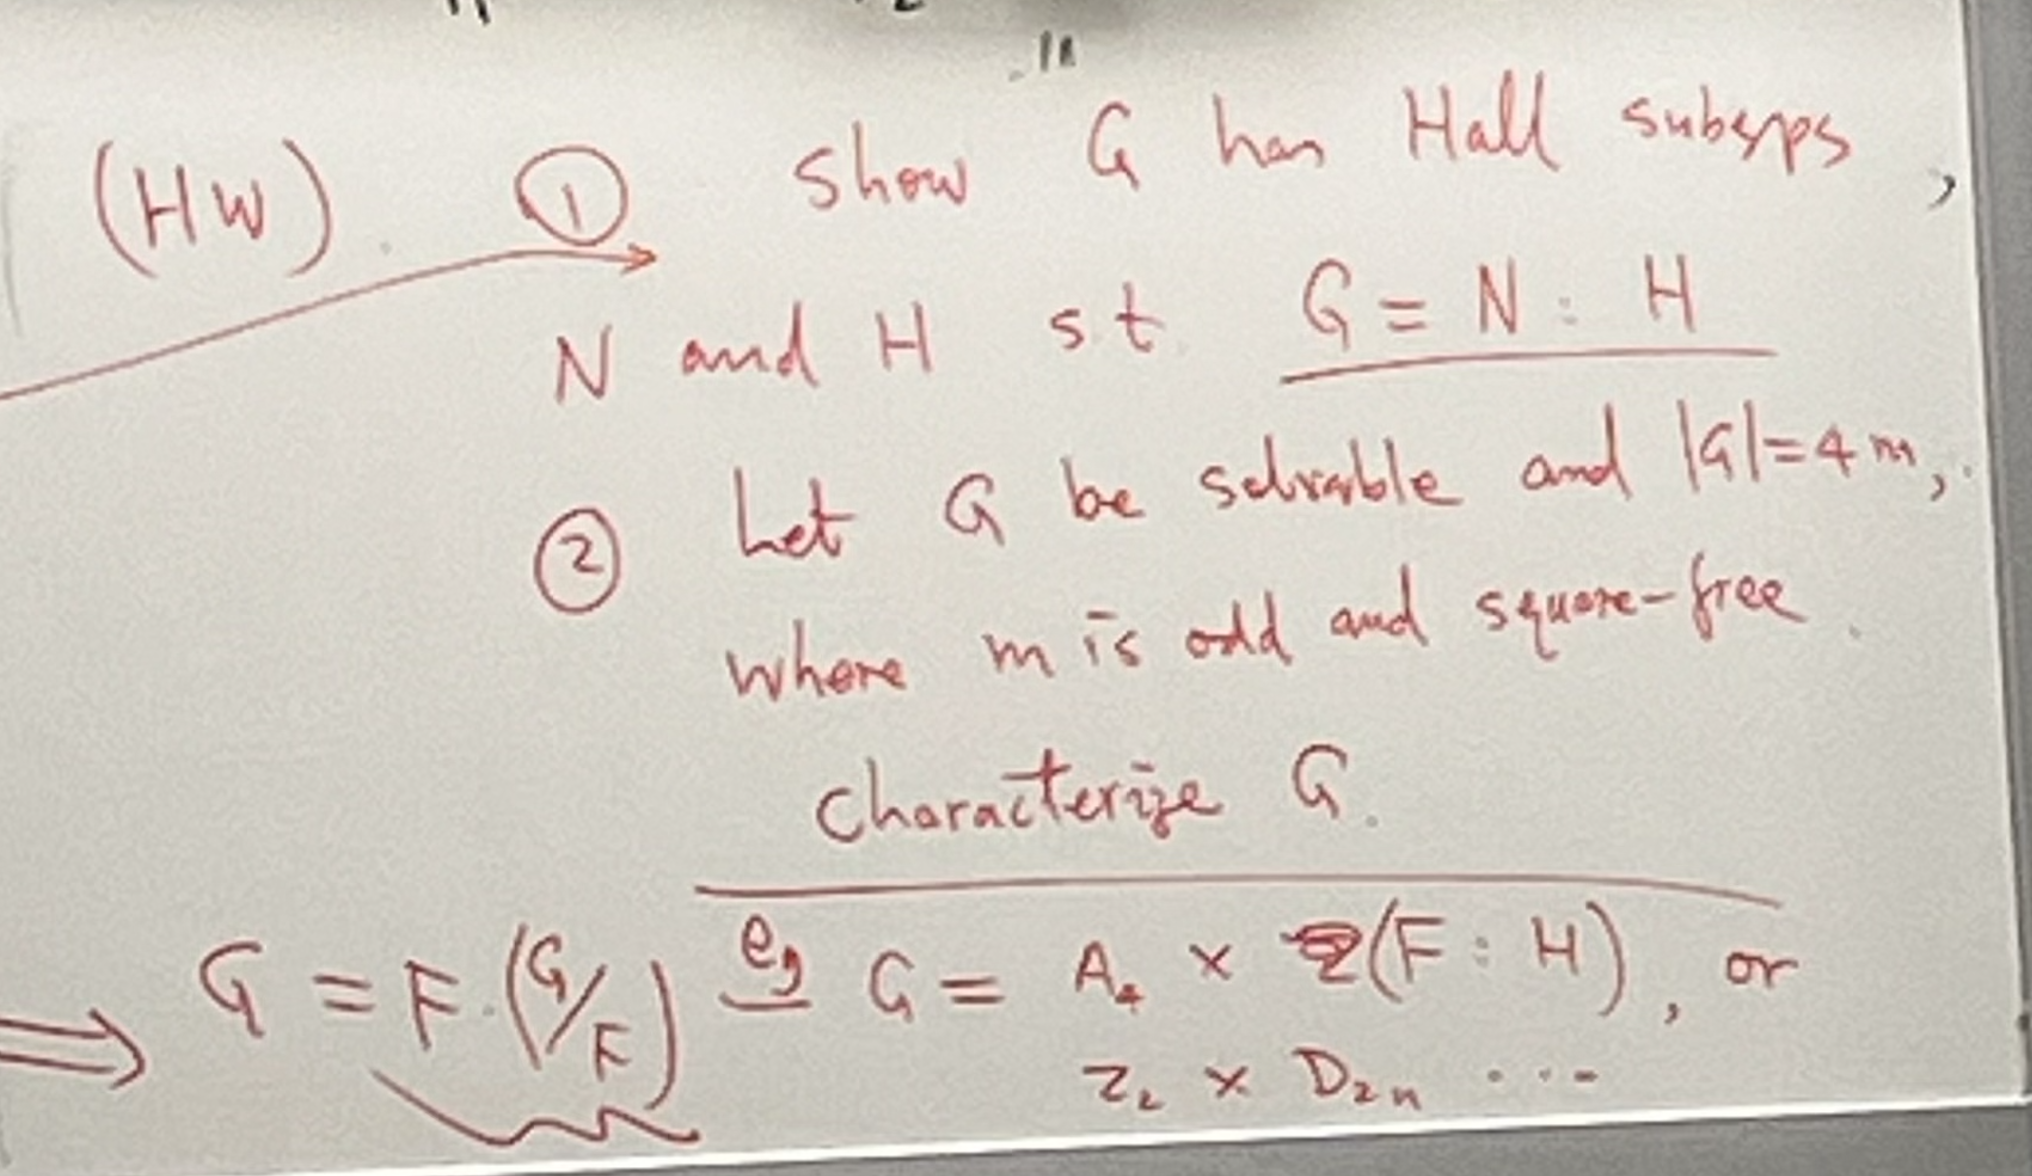 (HW) ① Show G has Hall subgps,
N and H s.t. G = N : H
② Let G be solvable and |G|=4m,
where m is odd and square-free.
Characterize G.
⇒ G = F.(G/F) eg G = A₄ × (F : H), or
Z₂ × D₂ₙ ...